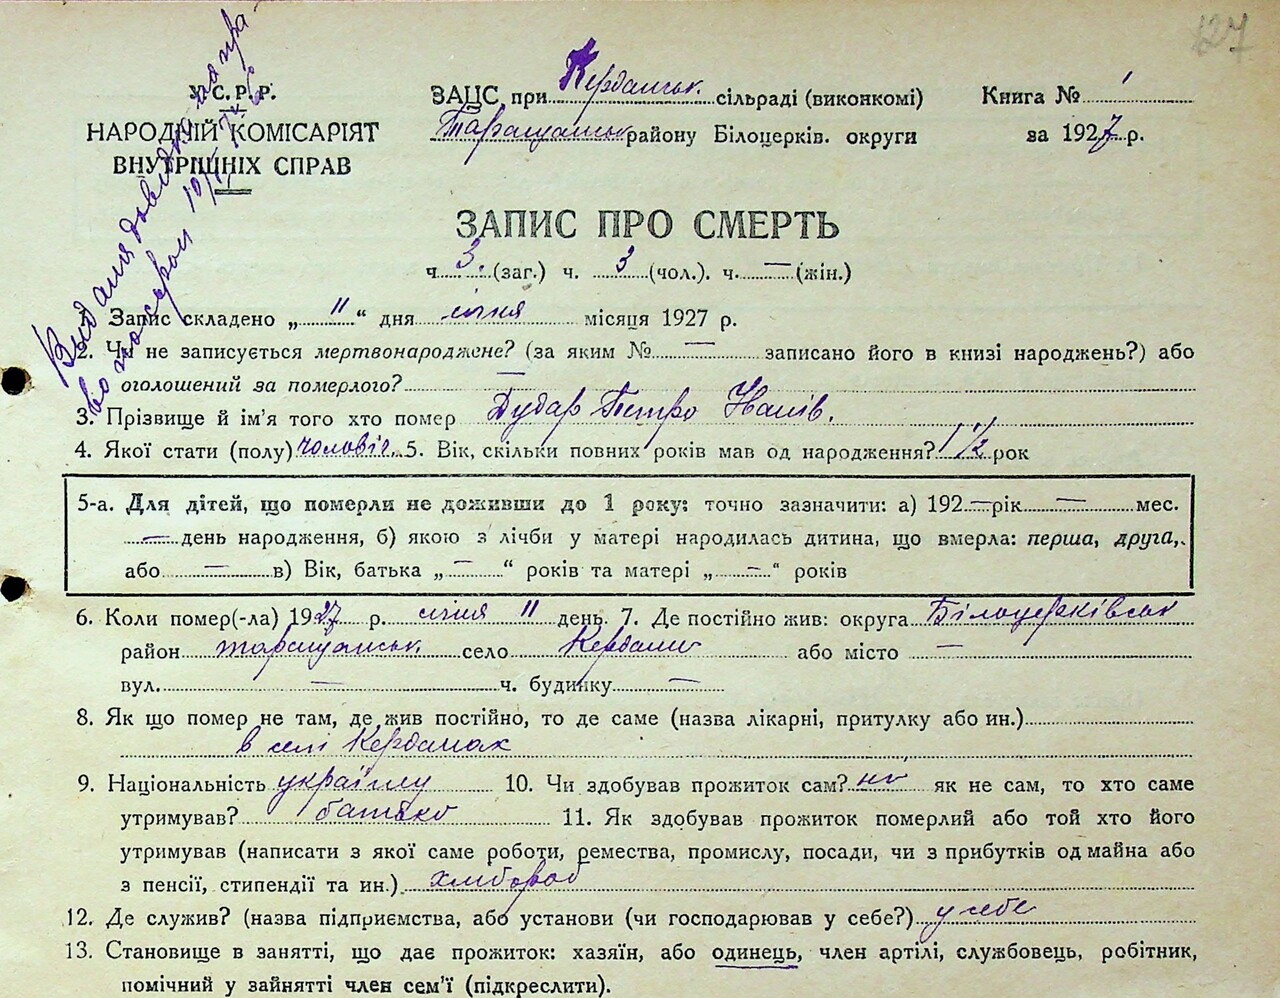 127
У.С.Р.Р.
НАРОДНІЙ КОМІСАРІЯТ
ВНУТРІШНІХ СПРАВ
ЗАЦС при Керданськ сільраді (виконкомі)
Таращанськ району Білоцерків. округи
Книга №
за 1927 р.
Видана довідка
ЗАПИС ПРО СМЕРТЬ
ч. 3. (заг.) ч. 3 (чол.). ч. — (жін.)
1. Запис складено „ 11 “ дня січня місяця 1927 р.
2. Чи не записується мертвонароджене? (за яким № — записано його в книзі народжень?) або
оголошений за померлого? —
3. Прізвище й ім'я того хто помер Дудар Петро Іванів.
4. Якої стати (полу) чоловіч. 5. Вік, скільки повних років мав од народження? 1 1/2 рок
5-а. Для дітей, що померли не доживши до 1 року: точно зазначити: а) 192 — рік — мес.
— день народження, б) якою з лічби у матері народилась дитина, що вмерла: перша, друга,
або — в) Вік, батька „ — “ років та матері „ — “ років
6. Коли помер(-ла) 1927 р. січня 11 день. 7. Де постійно жив: округа Білоцерківськ
район таращанськ село Кердани або місто —
вул. — ч. будинку —
8. Як що помер не там, де жив постійно, то де саме (назва лікарні, притулку або ин.)
в селі Керданах
9. Національність україну 10. Чи здобував прожиток сам? ні як не сам, то хто саме
утримував? батько 11. Як здобував прожиток померлий або той хто його
утримував (написати з якої саме роботи, ремества, промислу, посади, чи з прибутків од майна або
з пенсії, стипендії та ин.) хлібороб
12. Де служив? (назва підприємства, або установи (чи господарював у себе?) у себе
13. Становище в занятті, що дає прожиток: хазяїн, або одинець, член артілі, службовець, робітник,
помічний у зайнятті член сем'ї (підкреслити).